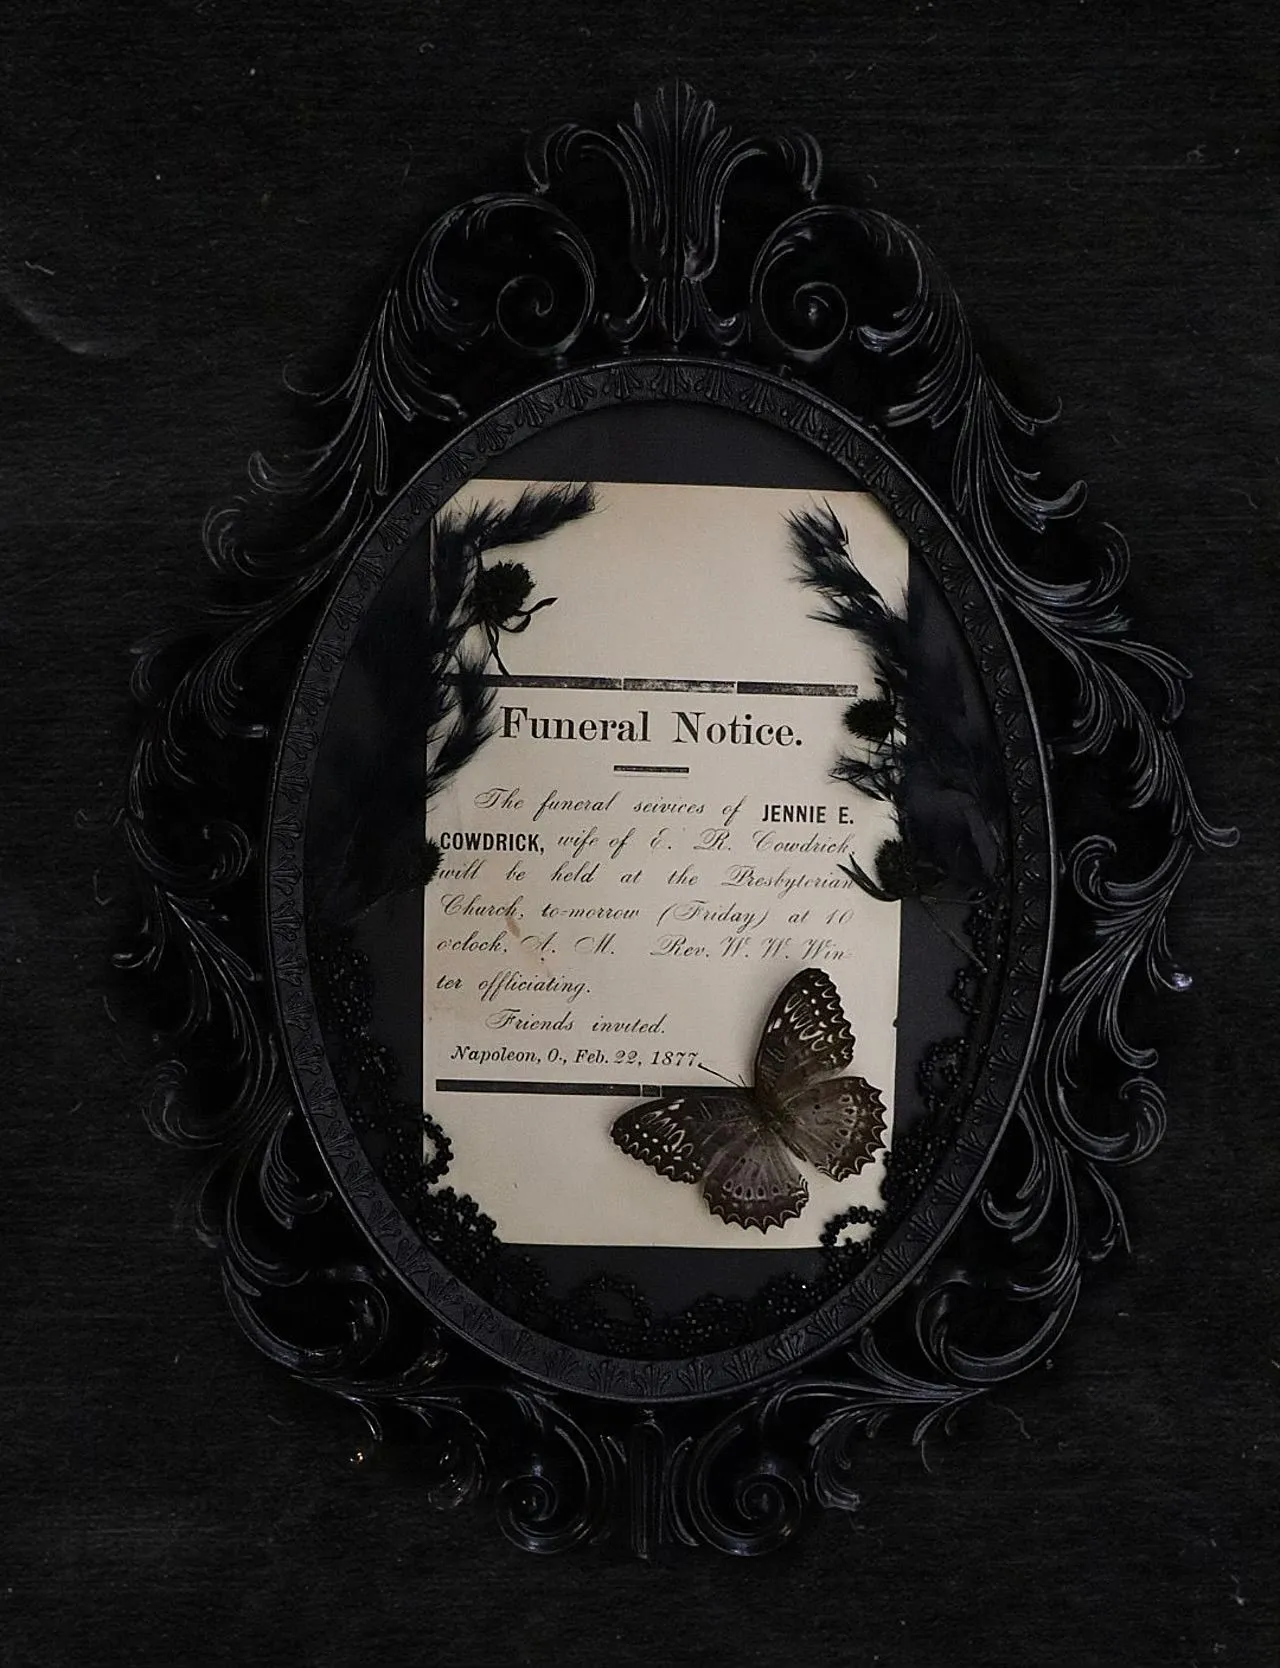 Funeral Notice.
The funeral seivices of JENNIE E.
COWDRICK, wife of E. R. Cowdrick,
will be held at the Presbyterian
Church, to-morrow (Friday) at 10
o'clock, A. M. Rev. W. W. Win-
ter offliciating.
Friends invited.
Napoleon, O., Feb. 22, 1877.